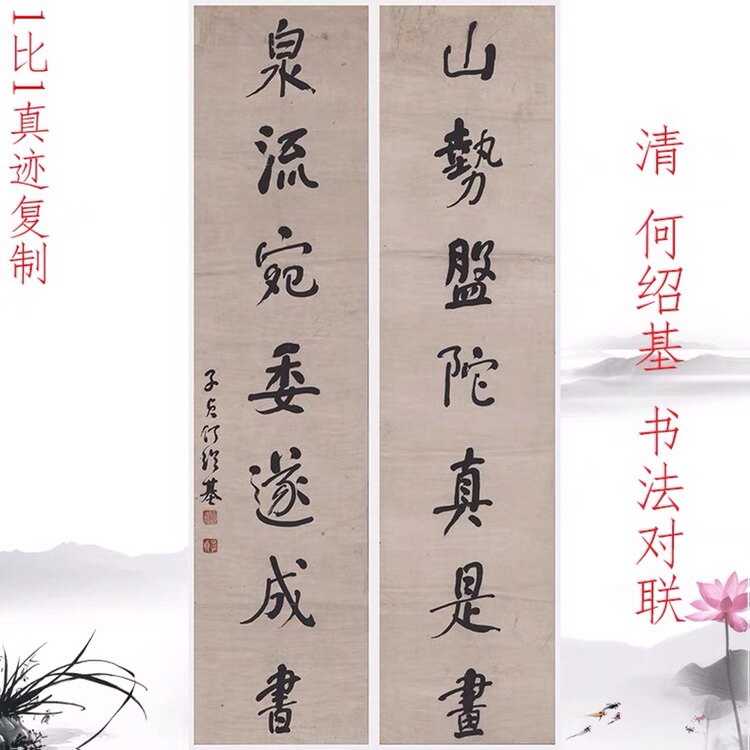 清 何绍基 书法对联
山勢盤陀真是畫
泉流宛委遂成書
子貞何紹基
1比1真迹复制